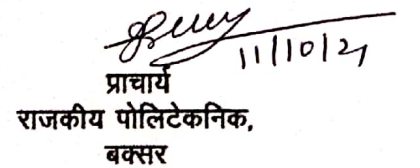 11/10/21
प्राचार्य
राजकीय पोलिटेकनिक,
बक्सर